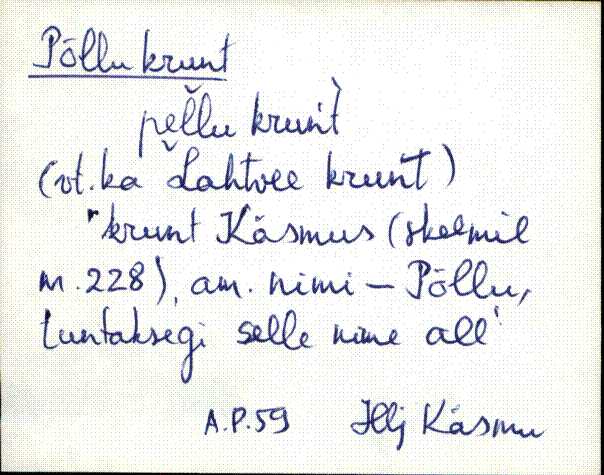 Põllu krunt
pe̮llu krun̄t̀
(vt. ka Lahtvee krunt)
"krunt Käsmus (skeemil
nr. 228), am. nimi – Põllu,
tuntaksegi selle nime all"
A.P. 59 Hlj Käsmu